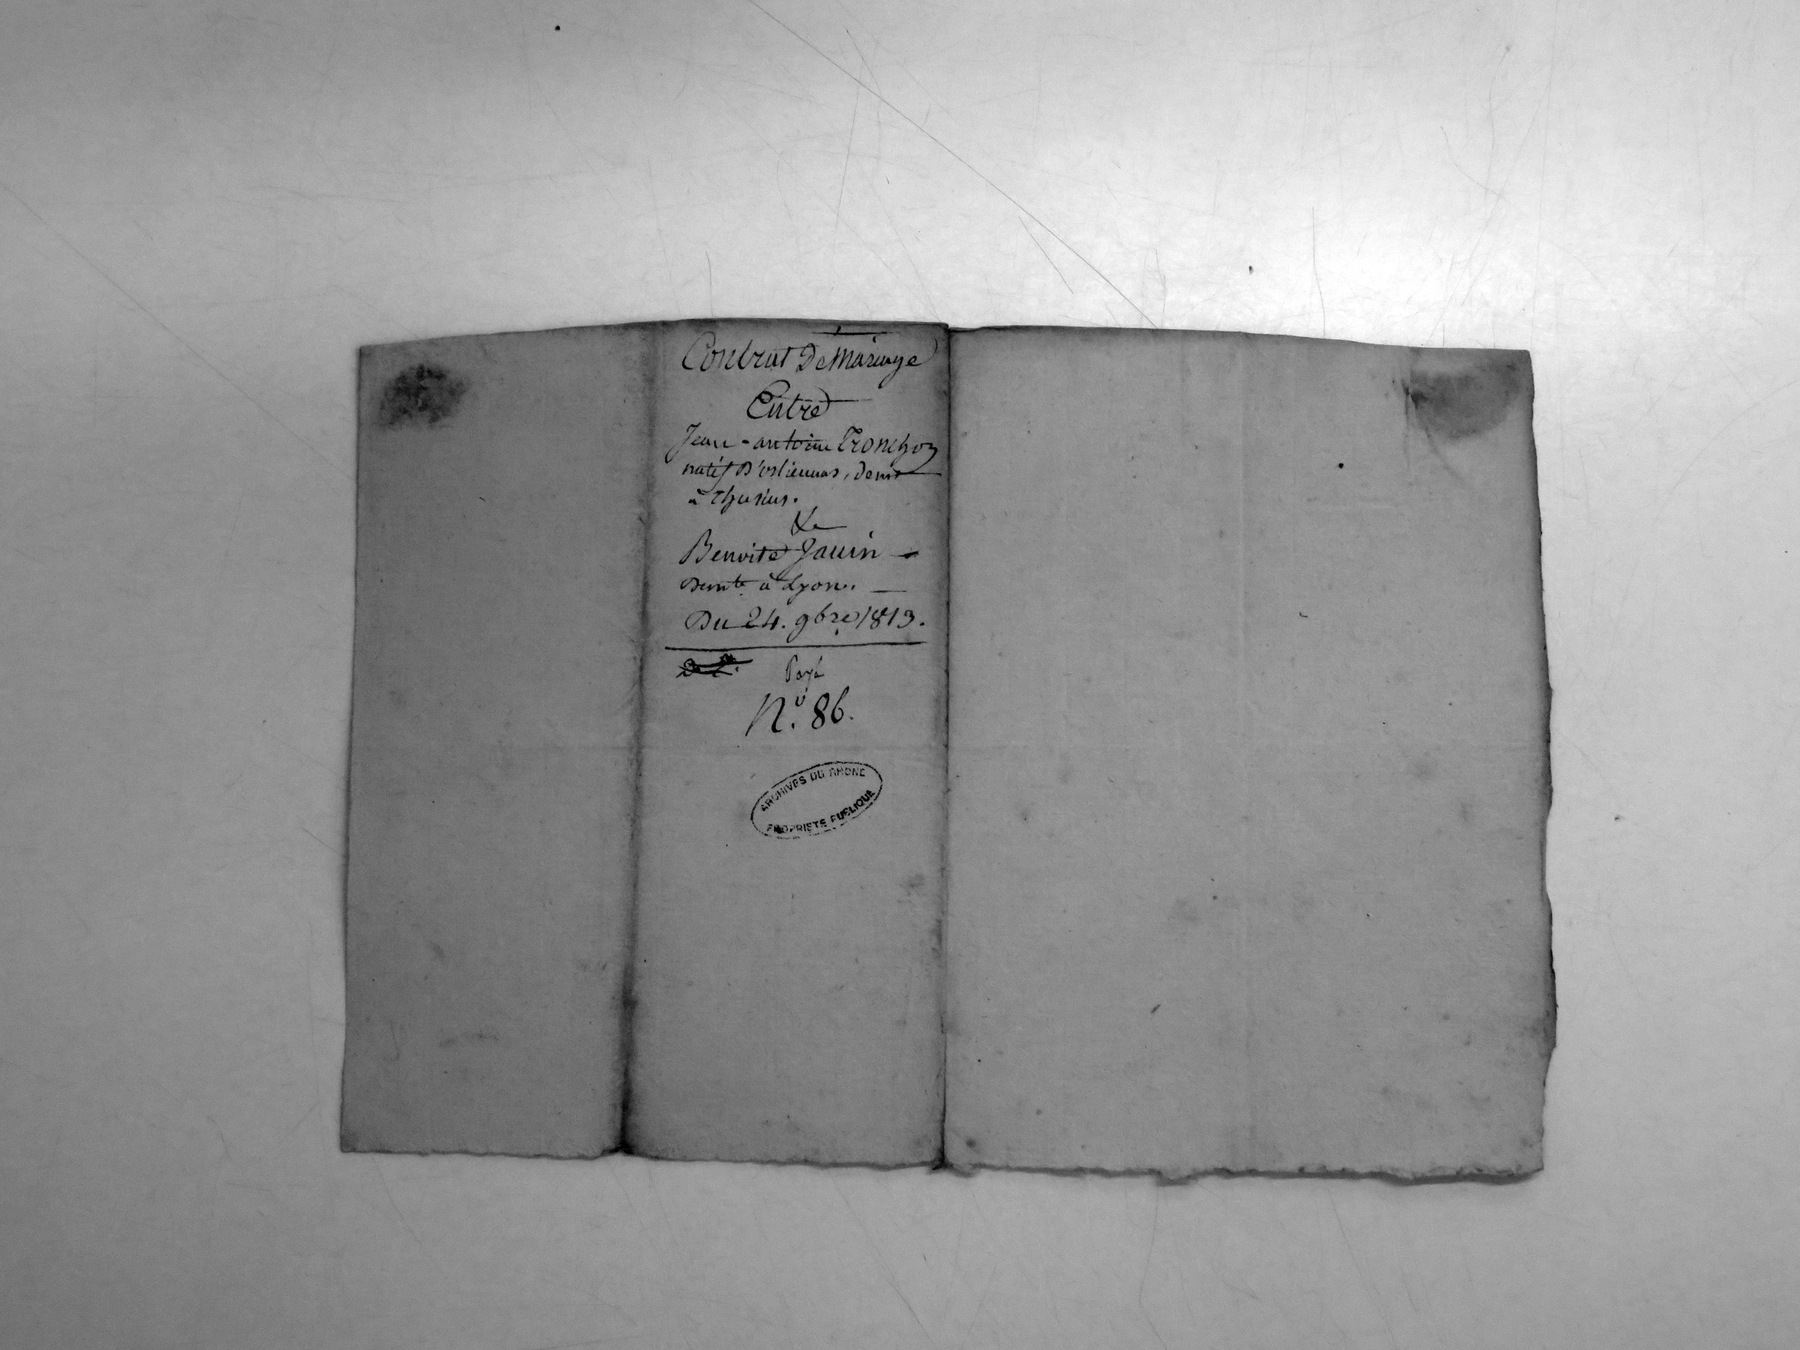 Contrat De Mariage
Entre
Jean-antoine Tronchon
natif D'orliennas, demt
à Thurins.
&
Benoite Jauin
Demte à Lyon.
Du 24. 9bre 1813.
Payé
No. 86.
ARCHIVES DU RHONE
PROPRIETE PUBLIQUE